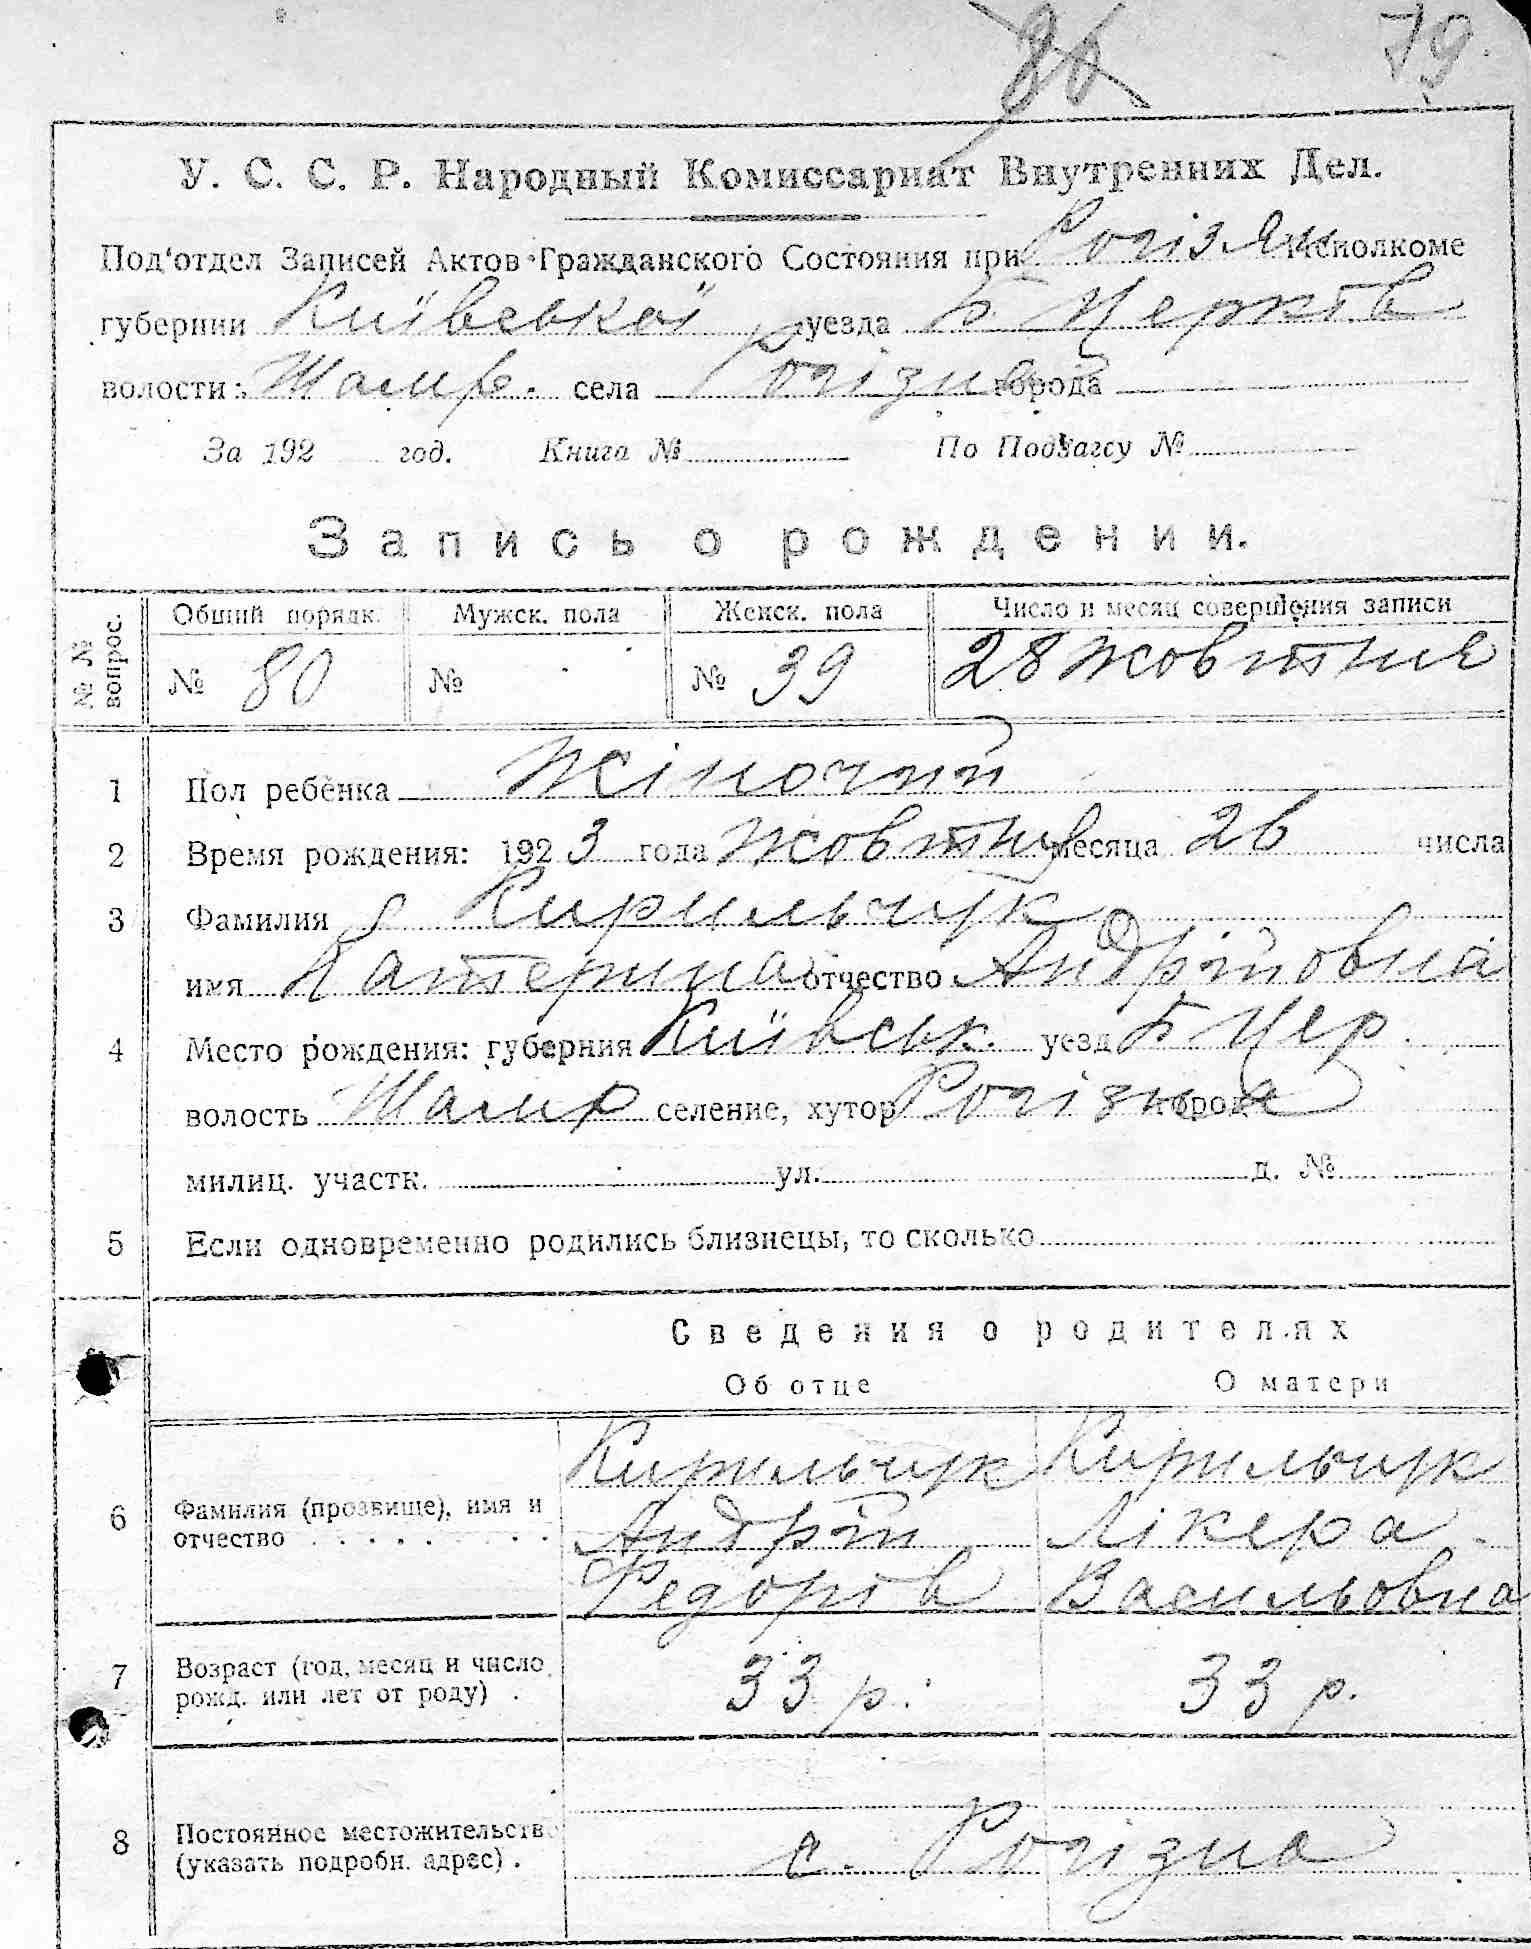 79
У. С. С. Р. Народный Комиссариат Внутренних Дел.
Под'отдел Записей Актов Гражданского Состояния при Рогізян Исполкоме
губернии Київської уезда Б Церков
волости Шамр. села Рогізна города
За 192 год. Книга № По Подзагсу №
Запись о рождении.
№ № вопрос. Общий порядк. Мужск. пола Женск. пола Число и месяц совершения записи
№ 80 № № 39 28 жовтня
1 Пол ребенка жіночий
2 Время рождения: 1923 года жовтня месяца 26 числа
3 Фамилия Кирильчук
имя Катерина отчество Андрійовна
4 Место рождения: губерния Київськ. уезд Б Цер.
волость Шамр селение, хутор Рогізна город
милиц. участк. ул. д. №
5 Если одновременно родились близнецы, то сколько
Сведения о родителях
Об отце О матери
Кирильчук Кирильчук
6 Фамилия (прозвище), имя и отчество Андрій Лікера
Федорів Васильовна
7 Возраст (год, месяц и число рожд. или лет от роду) 33 р. 33 р.
8 Постоянное местожительство (указать подробн. адрес). с. Рогізна